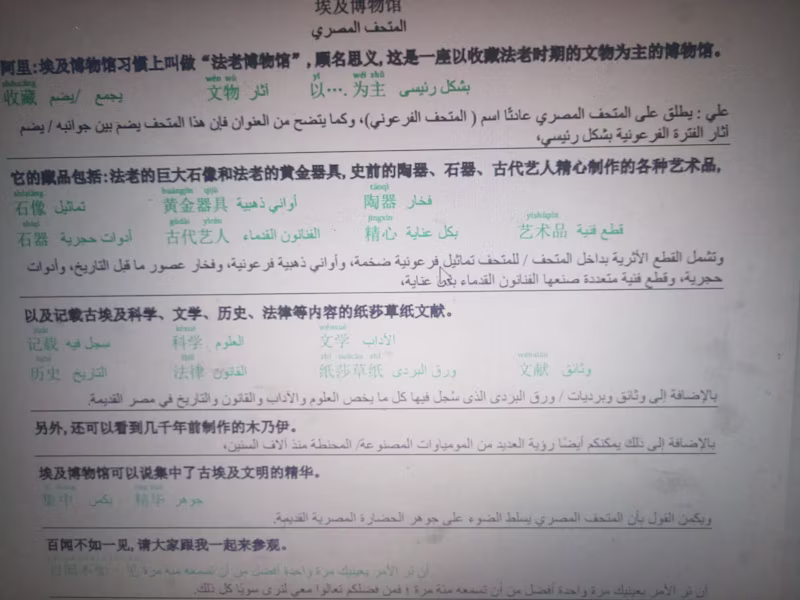 埃及博物馆
المتحف المصري
阿里:埃及博物馆习惯上叫做“法老博物馆”, 顾名思义, 这是一座以收藏法老时期的文物为主的博物馆。
shōucáng wén wù yǐ wéi zhǔ
收藏 يجمع /يضم 文物 آثار 以…. 为主 بشكل رئيسى
علي : يطلق على المتحف المصري عادتًا اسم ( المتحف الفرعوني)، وكما يتضح من العنوان فإن هذا المتحف يضم بين جوانبه / يضم
آثار الفترة الفرعونية بشكل رئيسي،
它的藏品包括:法老的巨大石像和法老的黄金器具, 史前的陶器、石器、古代艺人精心制作的各种艺术品,
shíxiàng huángjīn qìjù táoqì
石像 تماثيل 黄金器具 أواني ذهبية 陶器 فخار
shíqì gǔdài yìrén jīngxīn yìshùpǐn
石器 أدوات حجرية 古代艺人 الفنانون القدماء 精心 بكل عناية 艺术品 قطع فنية
وتشمل القطع الأثرية بداخل المتحف / للمتحف تماثيل فرعونية ضخمة، وأواني ذهبية فرعونية، وفخار عصور ما قبل التاريخ، وأدوات
حجرية، وقطع فنية متعددة صنعها الفنانون القدماء بكل عناية،
以及记载古埃及科学、文学、历史、法律等内容的纸莎草纸文献。
jìzǎi kēxué wénxué
记载 سجل فيه 科学 العلوم 文学 الآداب
lìshǐ fǎlǜ zhǐ suōcǎo zhǐ wénxiàn
历史 التاريخ 法律 القانون 纸莎草纸 ورق البردى 文献 وثائق
بالإضافة إلى وثائق وبرديات / ورق البردى الذى سُجل فيها كل ما يخص العلوم والآداب والقانون والتاريخ في مصر القديمة.
另外, 还可以看到几千年前制作的木乃伊。
بالإضافة إلى ذلك يمكنكم أيضًا رؤية العديد من المومياوات المصنوعة/ المحنطة منذ آلاف السنين،
埃及博物馆可以说集中了古埃及文明的精华。
集中 يكمن 精华 جوهر
ويكمن القول بأن المتحف المصري يسلط الضوء على جوهر الحضارة المصرية القديمة.
百闻不如一见, 请大家跟我一起来参观。
百闻不如一见 أن تر الأمر بعينيك مرة واحدة أفضل من أن تسمعه مئة مرة
أن تر الأمر بعينيك مرة واحدة أفضل من أن تسمعه مئة مرة ؛ فمن فضلكم تعالوا معي لنرى سويًا كل ذلك.